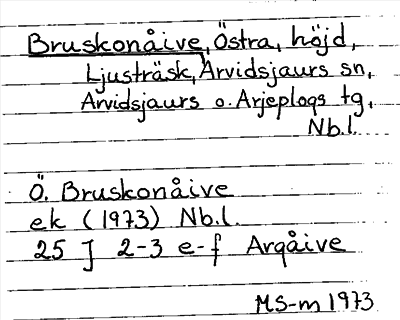 Bruskonåive, Östra, höjd,
Ljusträsk, Arvidsjaurs sn,
Arvidsjaurs o. Arjeplogs tg,
Nb.l.
Ö. Bruskonåive
ek (1973) Nb.l.
25 J 2-3 e-f Arqåive
MS-m 1973